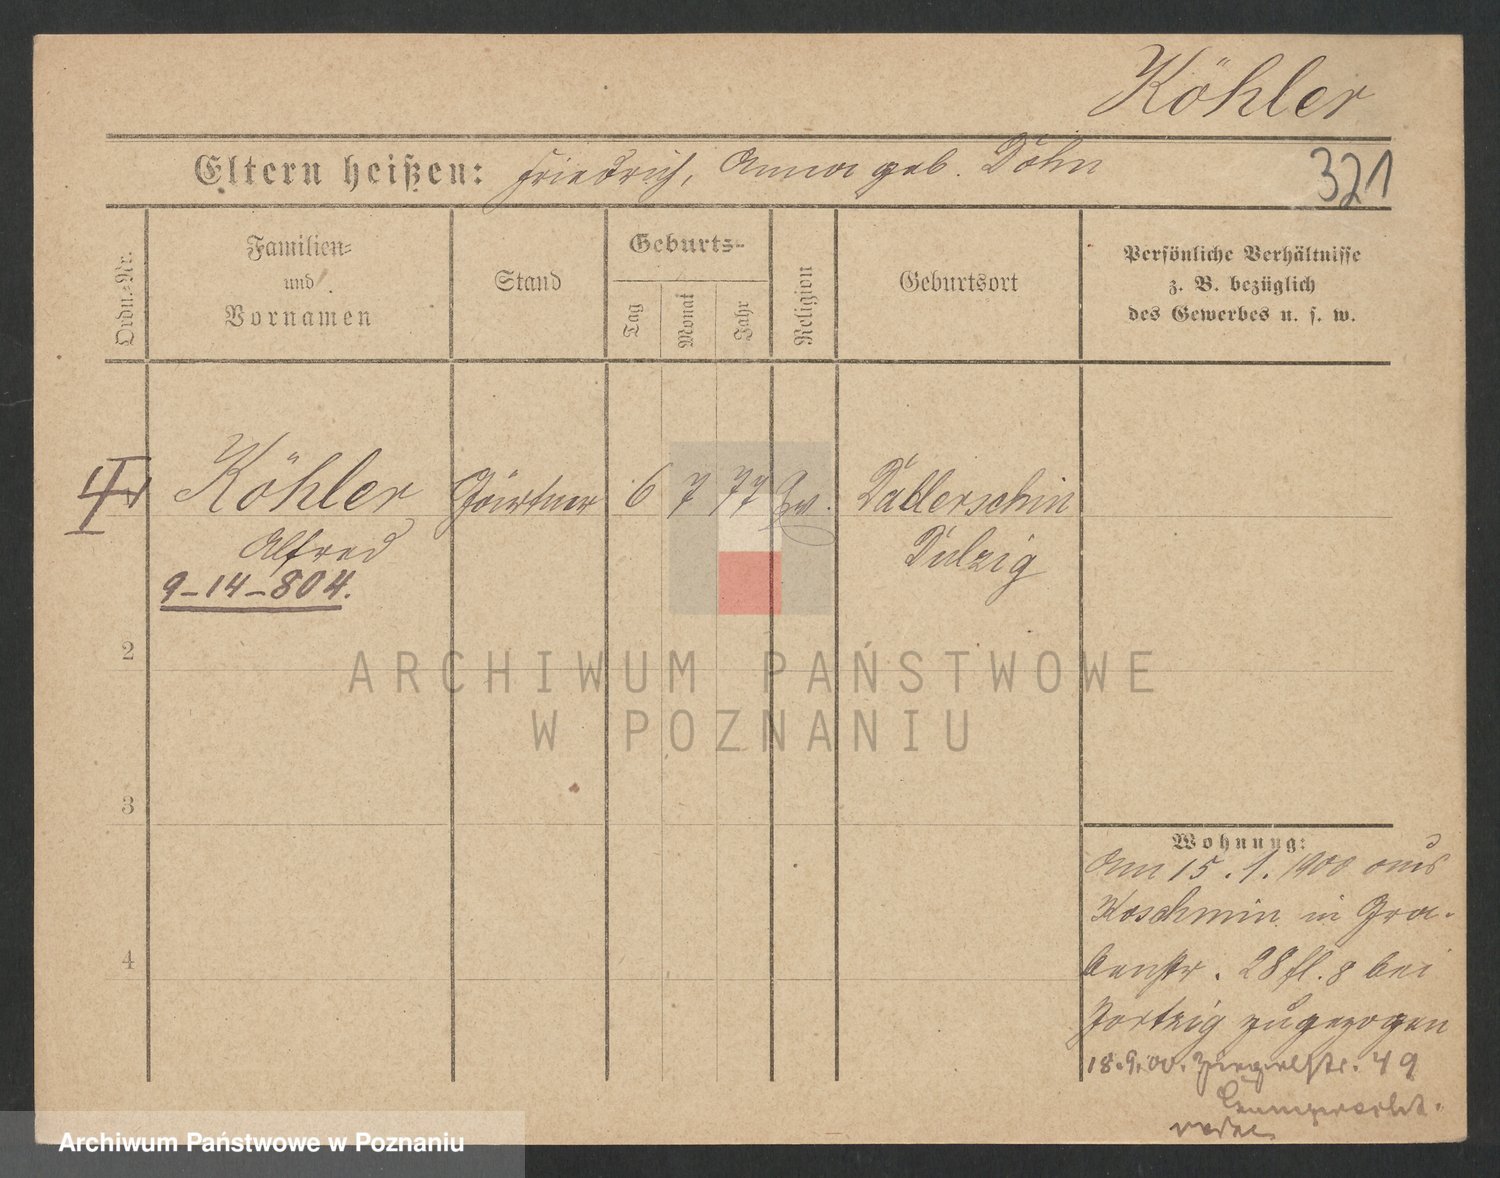 Köhler
Eltern heißen: Friedrich, Anna geb. Döhn
321
Ordn.-Nr.
Familien-
und
Vornamen
Stand
Geburts-
Tag
Monat
Jahr
Religion
Geburtsort
Persönliche Verhältnisse
z. B. bezüglich
des Gewerbes u. s. w.
Köhler Gärtner 6 7 77 Ev.
Alfred
9-14-804.
2
3
4
Wohnung:
Am 15.1.1900 aus
Koschmin in Gra-
benstr. 28 fl. 8 bei
zugezogen
18.9.00. 49
ARCHIWUM PAŃSTWOWE
W POZNANIU
Archiwum Państwowe w Poznaniu